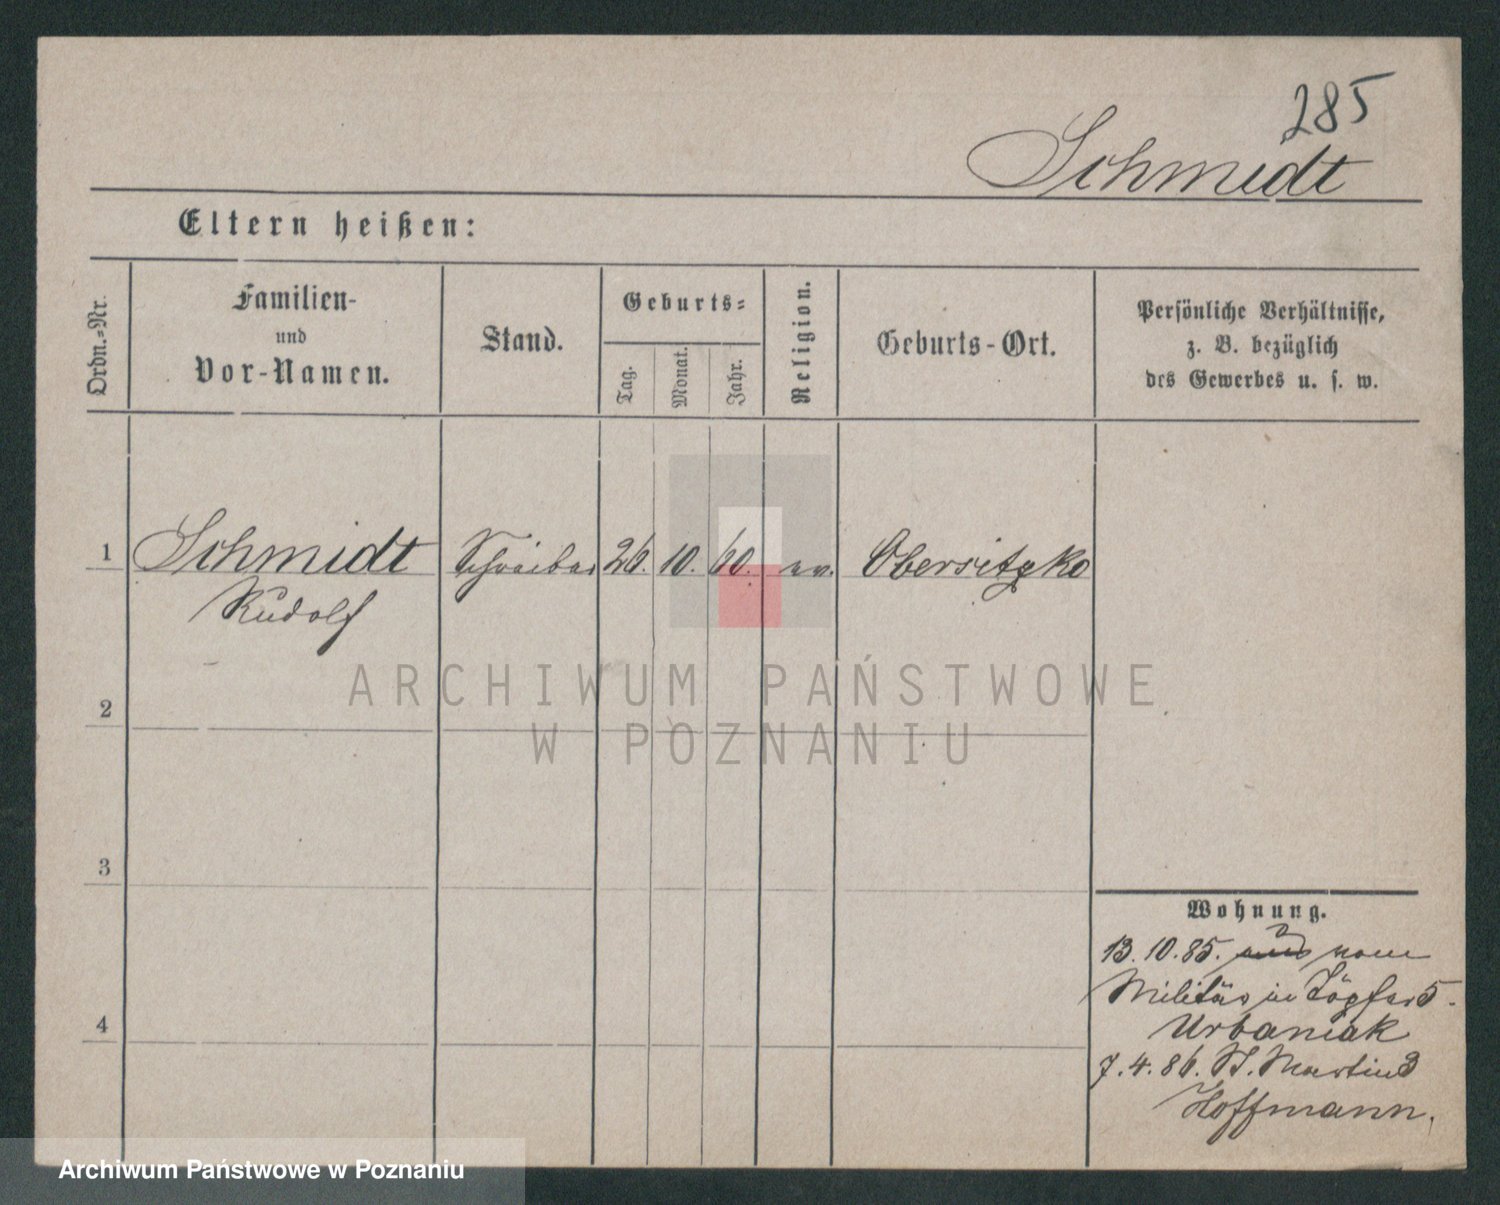 285
Schmidt
Eltern heißen:
Ordn.-Nr.
Familien-
und
Vor-Namen.
Stand.
Geburts-
Tag.
Monat.
Jahr.
Religion.
Geburts-Ort.
Persönliche Verhältnisse,
z. B. bezüglich
des Gewerbes u. s. w.
1 Schmidt Schreiber 26. 10. 60. ev. Obersitzko
Rudolf
ARCHIWUM PAŃSTWOWE
W POZNANIU
2
3
4
Wohnung.
13. 10. 85. aus vom
Militär in Töpfer 5.
Urbaniak
7. 4. 86. St. Martin 3
Hoffmann.
Archiwum Państwowe w Poznaniu